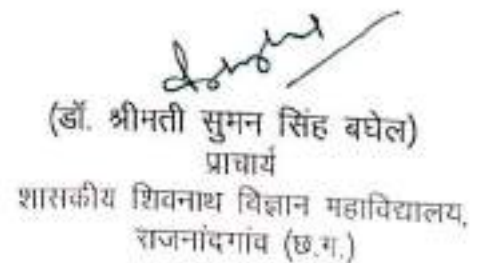 (डॉ. श्रीमती सुमन सिंह बघेल)
प्राचार्य
शासकीय शिवनाथ विज्ञान महाविद्यालय,
राजनांदगांव (छ.ग.)